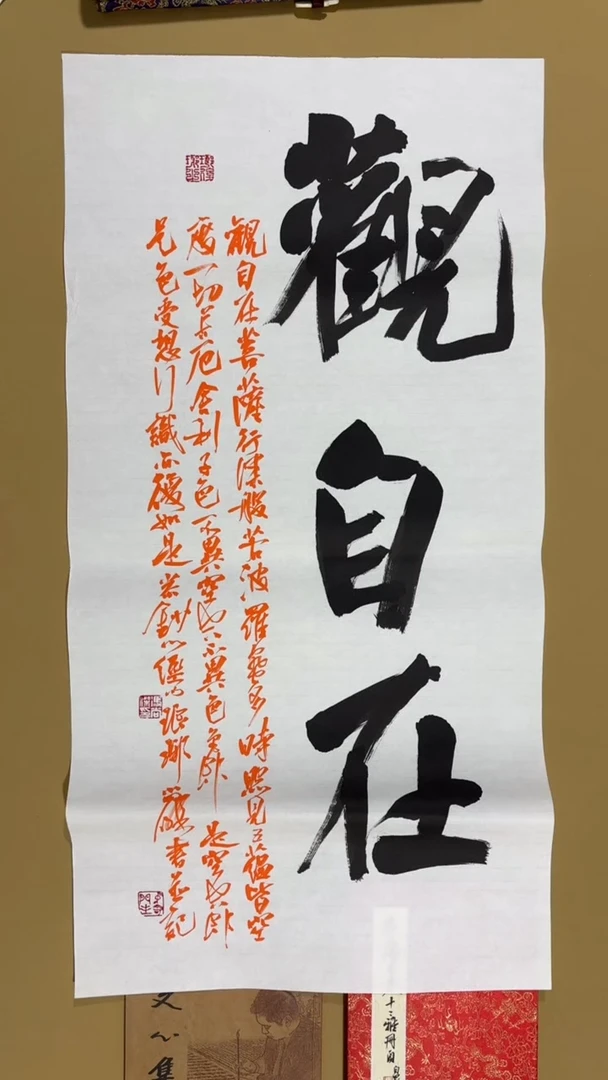 觀自在
觀自在菩薩行深般若波羅蜜多時照見五蘊皆空
度一切苦厄舍利子色不異空空不異色色即是空空即
是色受想行識亦復如是鈔心經書並記
文心集